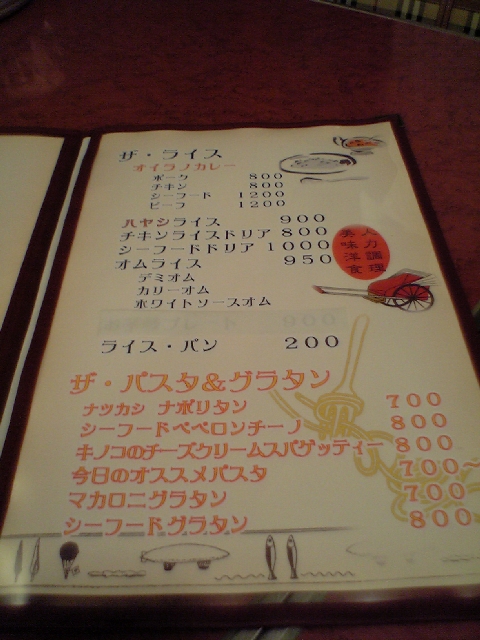 ザ・ライス
オイラノカレー
ポーク 800
チキン 800
シーフード 1200
ビーフ 1200
ハヤシライス 900
チキンライスドリア 800
シーフードドリア 1000
オムライス 950
デミオム
カリーオム
ホワイトソースオム
ライス・パン 200
人力調理
味洋食
ザ・パスタ&グラタン
ナツカシ ナポリタン 700
シーフードペペロンチーノ 800
キノコのチーズクリームスパゲッティー 800
今日のオススメパスタ 700～
マカロニグラタン 700
シーフードグラタン 800